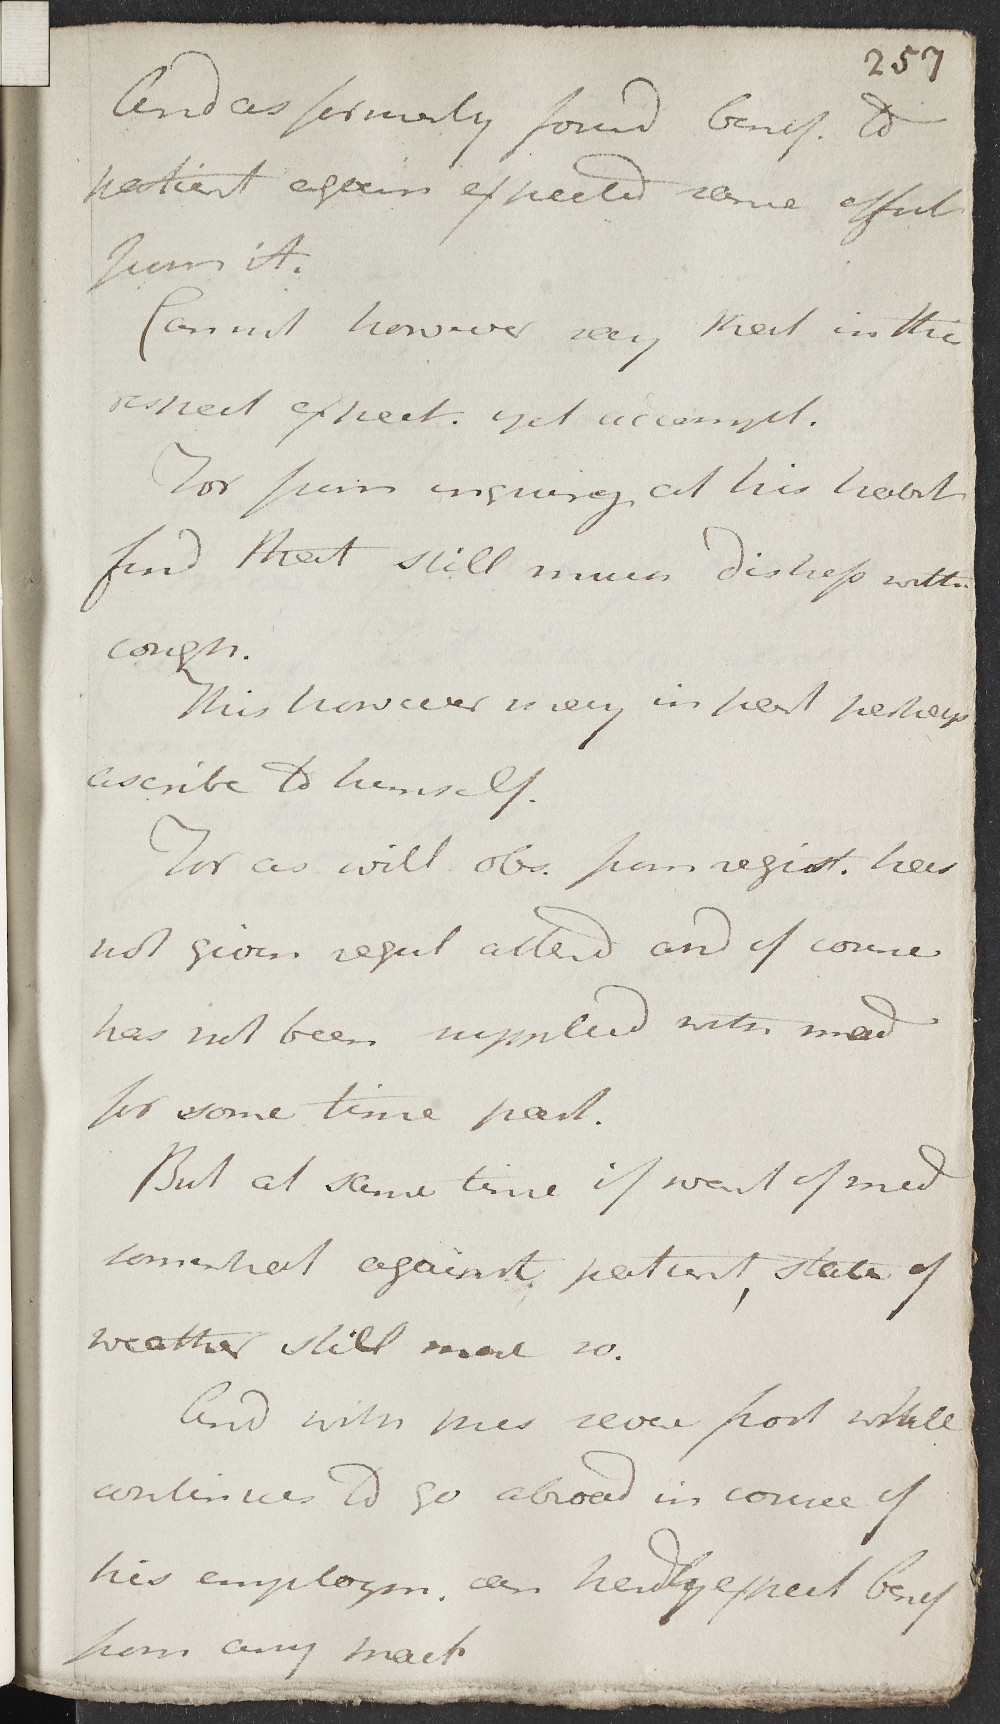 257
And as formerly found benef. to
patient again expected same effect
from it.
Cannot however say that in this
respect expect. yet accompl.
For from inquiring at his habit
find that still much distress with
cough.
This however may in part perhaps
ascribe to himself.
For as will obs. from regist. has
not given regul attend and of course
has not been supplied with med
for some time past.
But at same time if want of med
somewhat against patient, state of
weather still more so.
And with pres severe frost while
continues to go abroad in course of
his employm. can hardly expect benef
from any pract